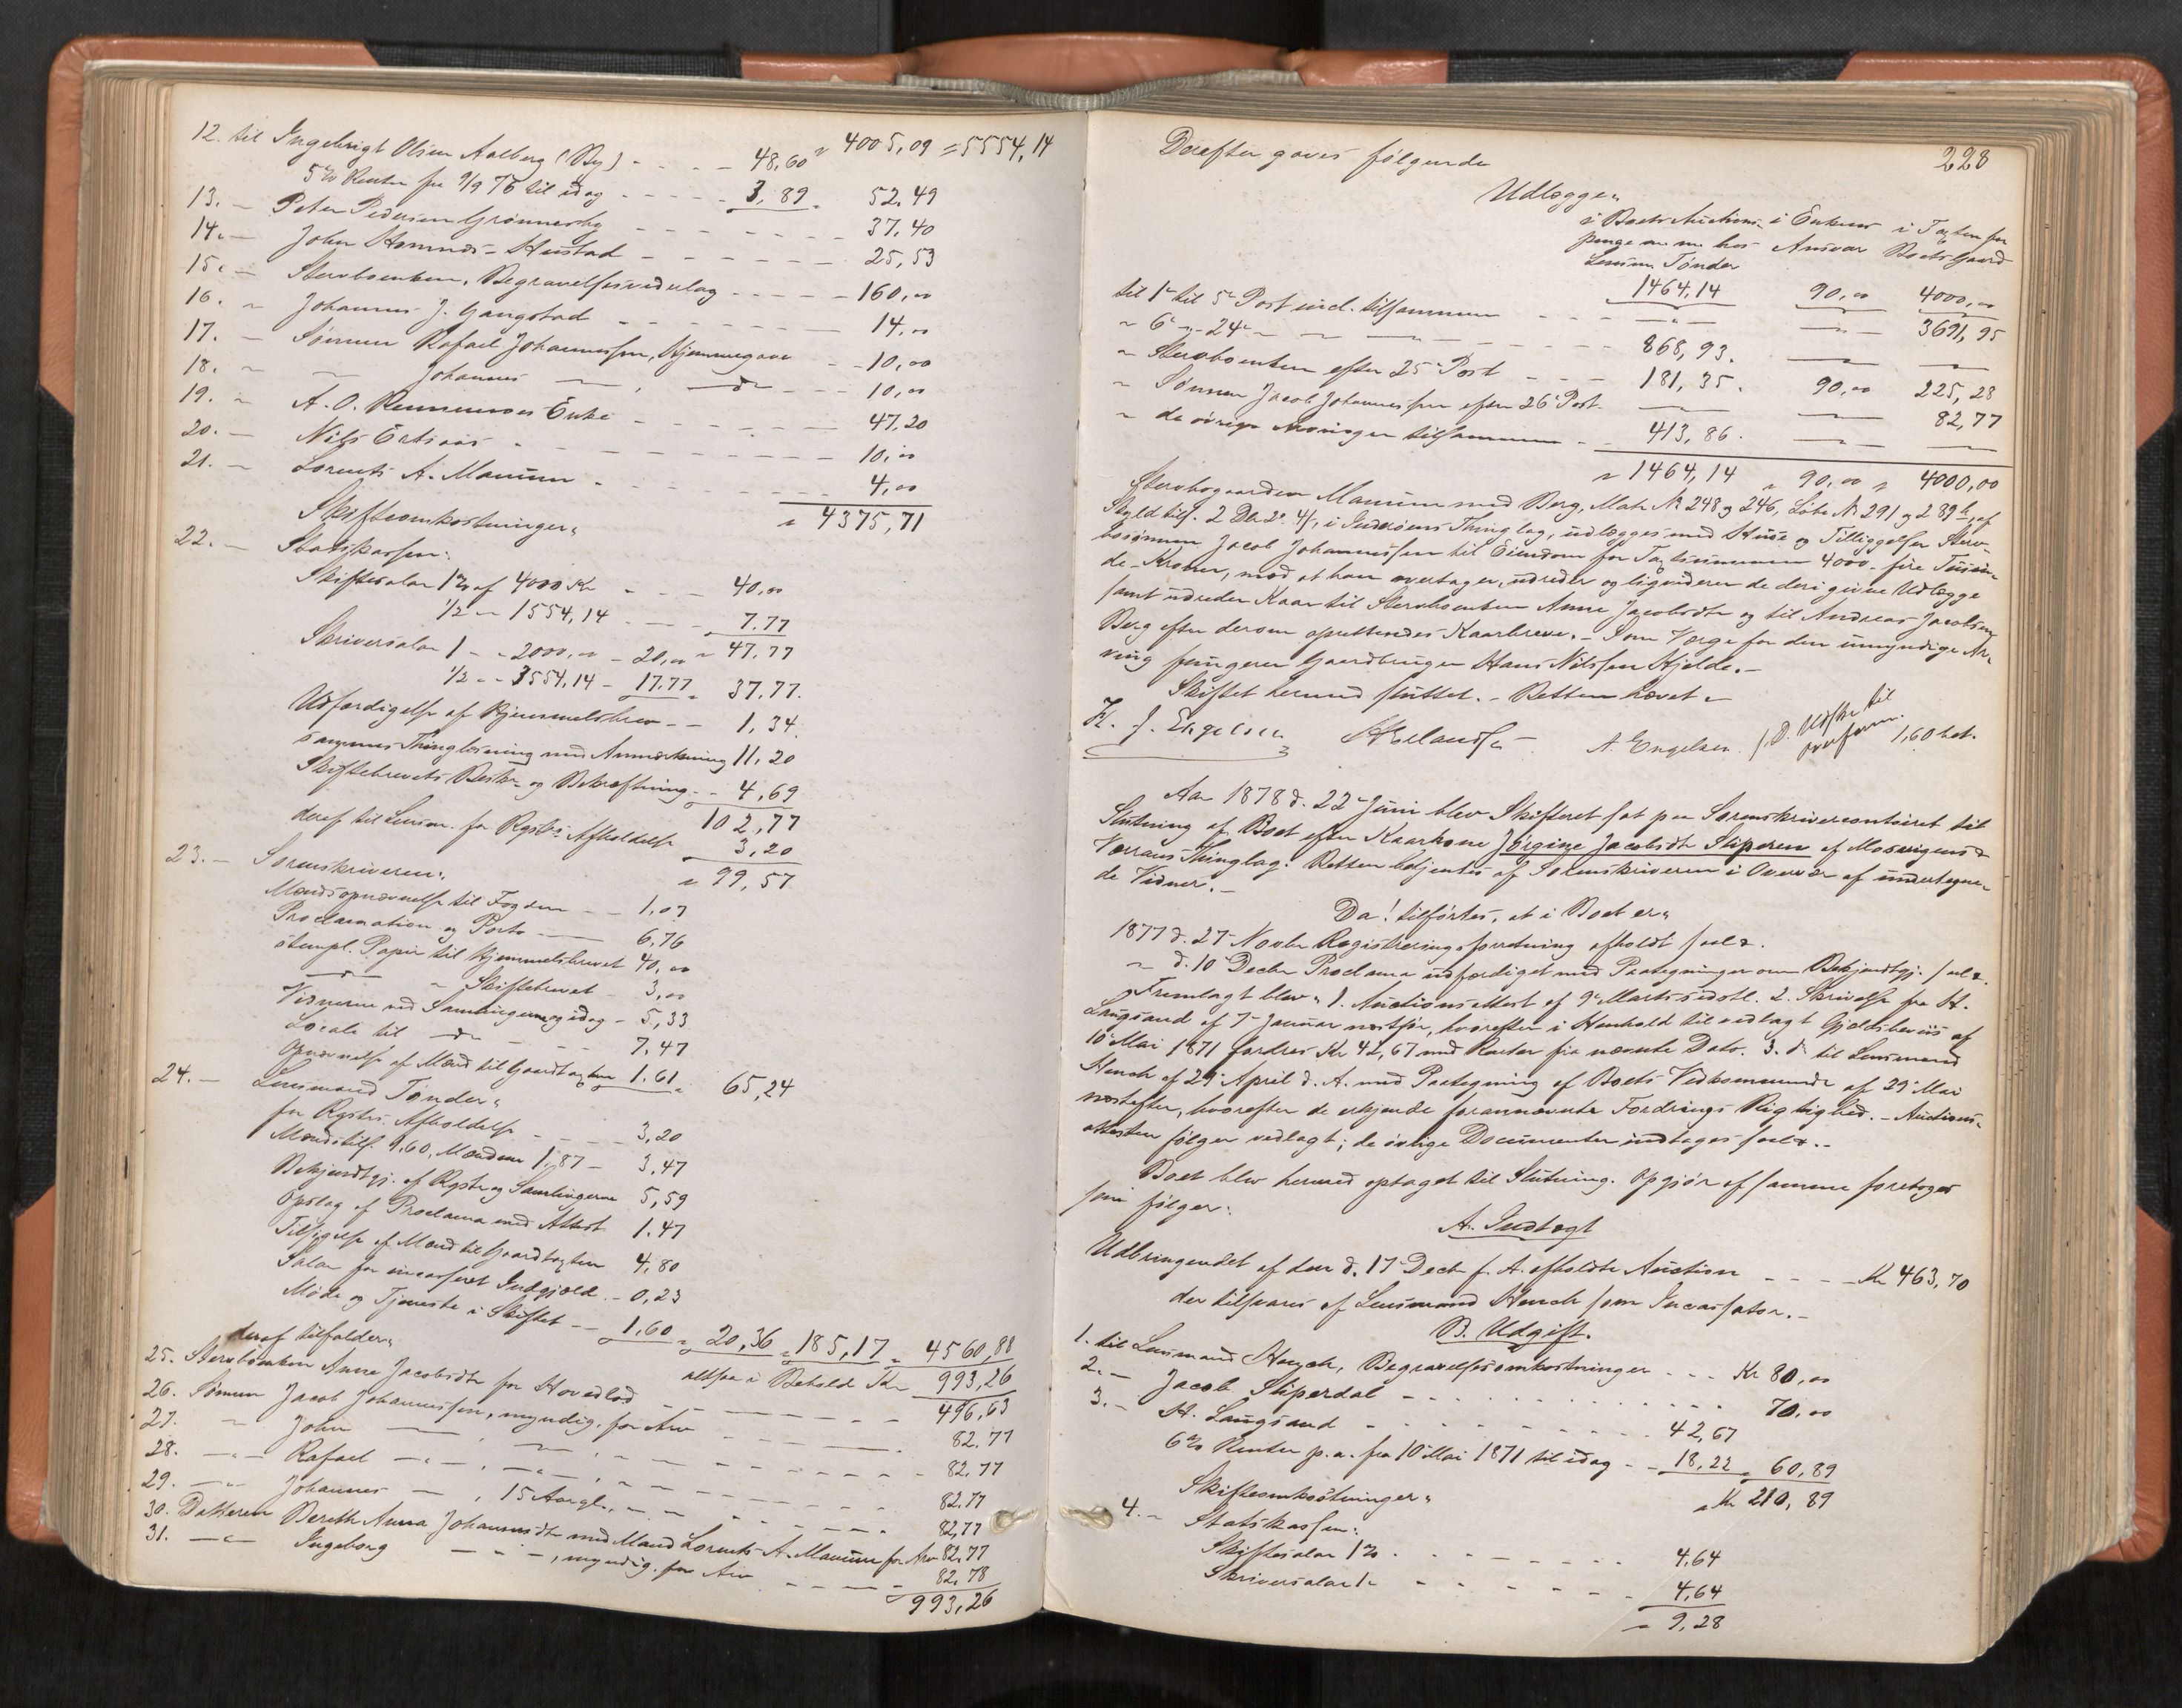 12. til Ingebrigt Olsen Aalberg (By) - - - - 48,60 " 4005,09 = 5554,14
5% Renter fra 9/9 76 til idag - - - - - 3,89 " 52,49
13. - Peter Pedersen Grønnesby - - - - - - - 37,40
14. - John Hamnes-Hustad - - - - - - 25,53
15. - Sterboenken, Begravelsesvederlag - - - - - 160,00
16. " Johannes J. Gangstad - - - - - - - 14,00
17. - Sønnen Rafael Johannessen, Hjemmegave - - 10,00
18. " " Johannes — , — do — - - 10,00
19. " A. O. Enke - - - - - - - 47,20
20. - Nils - - - - - - - - - 10,00
21. - Lorents A. Manum - - - - - - - - 4,00
" 4375,71
Skifteomkostninger:
22. - Statskassen:
Skiftesalar 1% af 4000 Kr - - - 40,00
1/2 " - 1554,14 - - - - 7.77
" 47.77
Skriversalar 1 - - 2000,00 - 20,00
1/2 - - 3554,14 - 17,77 " 37,77.
Udfærdigelse af Hjemmelsbrev - - 1,34.
sammes Thinglæsning med Anmærkning 11,20
Skiftebrevets Beskr. og Bekræftning - - 4,69
102,77
deraf til Lensm. for Rgstr.s Afholdelse 3,20
" 99,57
23. - Sorenskriveren:
Mandsopnævnelse til Fogden - - 1,07
Proclamation og Porto - — 6,76
stempl. Papir til Hjemmelsbrevet 40,00
— do — " Skiftebrevet - 3,00
Vidnerne ved Samlingerne og idag - 5,33
Locale til — do - - - - 7,47
Opnævnelse af Mænd til Gaardtaxten 1.61 " 65,24
24. - Lensmand Tønder:
for Rgstrs. Afholdelse - - - - 3,20
Mandstils. 1,60, Mændene 1,87 - 3,47
Bekjendtgj. af Rgstr. og Samlingerne 5,59
Opslag af Proclama med Attest 1.47
Tilsigelse af Mænd til Gaardtaxten 4,80
Salar for incasseret Indgjæld - 0,23
Møde og Tjeneste i Skiftet - - 1,60 " 20,36 " 185,17 " 4560,88
altsaa i Behold Kr 993,26
deraf tilfalder:
25. Sterboenken Anne Jacobsdtr for Hovedlod - - - - - - - - 496,63
26. Sønnen Jacob Johannessen, myndig, for Arv - - - - 82.77
27. " John — , — , - - - - - - - 82,77
28. - " - Rafael - " - , - " - , - - - - - - - 82.77
29. - " - Johannes — , 15 Aar gl., - " - - - - - 82,77
30. Datteren Bereth Anna Johannesdtr med Mand Lorents A. Manum for Arv 82.77
31. - " - Ingeborg - - - , myndig, for Arv - - - - - 82,78
" 993,26

228
Derefter gaves følgende
Udlægge:
i Boets Auctions- i Enkens i Taxten for
penge m. m. hos Ansvar Boets Gaard
Lensm. Tønder
1464,14 90,00 4000,00
til 1e til 5e Post incl. tilsammen - - - - " - - " - 3691,95
" 6e - " - 24e - " — — - - - - - 868,93. — —
" Sterboenken efter 25e Post - - - - 181,35. 90,00 225,28
" Sønnen Jacob Johannessen efter 26e Post — — 82,77
" de øvrige Arvinger tilsammen - - 413,86. — —
" 1464,14 " 90,00 " 4000,00
Sterbogaarden Manum med Berg, Matr. No 248 og 246, Løbe No 291 og 289 b, af
Skyld tils. 2 Dlr 2 " 4 /, i Inderøens Thinglag, udlægges med Huse og Tilliggelser Sterv-
bosønnen Jacob Johannessen til Eiendom for Taxtsummen 4000 - fire Tusin-
de - Kroner, mod at han overtager, udreder og ligviderer de deri givne Udlægge
samt udreder Kaar til Sterboenken Anne Jacobsdtr og til Andreas Jacobsen
Berg efter derom oprettendes Kaarbreve. - Som Værge for den umyndige Ar-
ving fungerer Gaardbruger Hans Nilssen Hjelde. -
Skiftet hermed sluttet. - Retten hævet. -
H. J. Engelsen A. Engelsen 1,60 bet.

Aar 1878 d. 22 Juni blev Skifteret sat paa Sorenskrivercontoiret til
Slutning af Boet efter Kaarkone Jørgine Jacobsdtr Stiperen af Mosvigens &
Værrans Thinglag. Retten betjentes af Sorenskriveren i Overvær af undertegne-
de Vidner. -
Da! tilførtes, at i Boet er:
1877 d. 27 Novbr Registreringsforretning afholdt salv.
" d. 10 Decbr Proclama udfærdiget med Paategninger om Bekjendtgj. salv.
Fremlagt blev: 1. Auctionsattest af 9e Marts sidstl. 2. Skrivelse fra H.
Langsand af 7 Januar næstfør, hvorefter i Henhold til vedlagt Gjældsbeviis af
10 Mai 1871 fordres Kr 42,67 med Renter fra nævnte Dato. 3. do til Lensmand
Hench af 29 April d. A. med Paategning af Boets Vedkommende af 29 Mai
næstefter, hvorefter de erkjende forannævnte Fordrings Rigtighed. - Auctions-
attesten følger vedlagt; de øvrige Documenter indtages salv. -
Boet blev hermed optaget til Slutning. Opgjør af samme foretoges
som følger:
A. Indtægt
Udbringendet af den d. 17 Decbr f. A. afholdte Auction - - - - Kr 463,70
der tilsvares af Lensmand Hench som Incassator. -
B. Udgift.
1. til Lensmand Hench, Begravelsesomkostninger - - - Kr 80,00
2. - Jacob Stiperdal - - - - - - - - - - - - 70,00
3. - H. Langsand - - - - - - - - - - 42,67
6% Renter p. a. fra 10 Mai 1871 til idag - - 18,22 " 60,89
" Kr 210,89
Skifteomkostninger:
4. - Statskassen:
Skiftesalar 1% - - - - - - - 4.64
Skriversalar 1 - - - - - - - 4,64
" 9,28